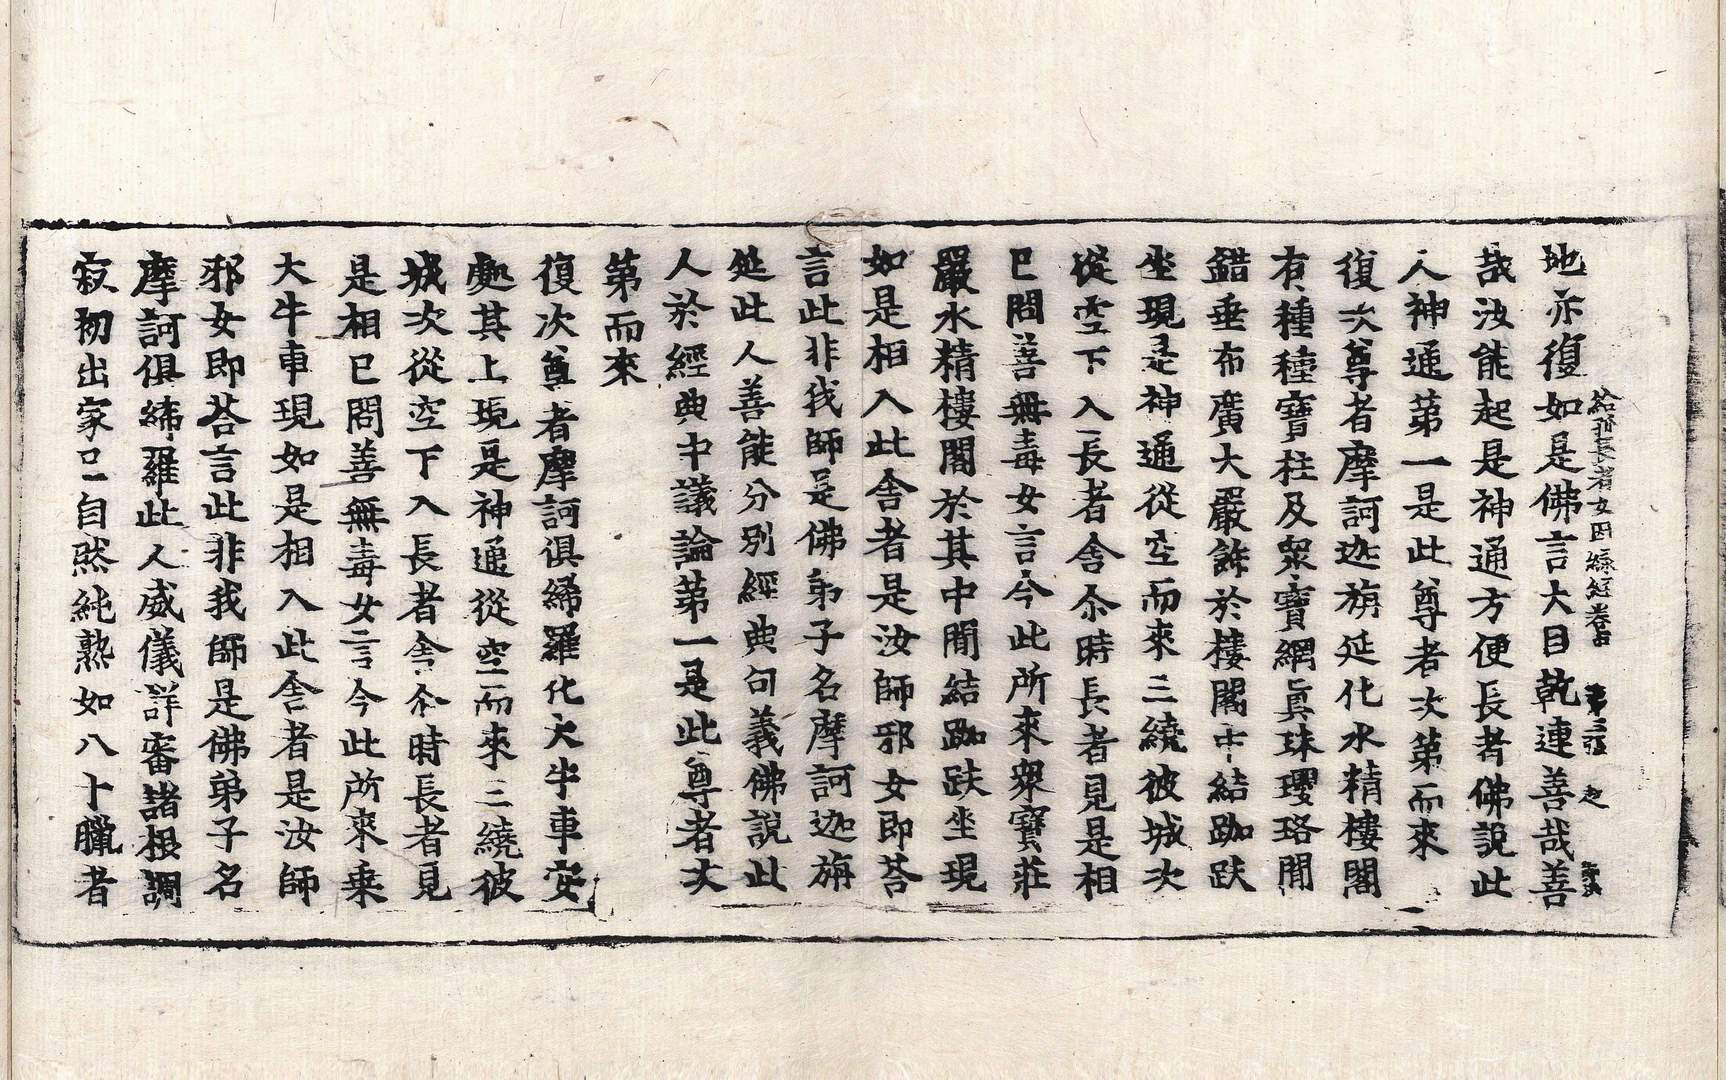 給孤長者女因緣經卷下 第三張
地亦復如是佛言大目乾連善哉善
哉汝能起是神通方便長者佛說此
人神通第一是此尊者次第而來
復次尊者摩訶迦旃延化水精樓閣
有種種寶柱及衆寶網眞珠瓔珞閒
錯垂布廣大嚴飾於樓閣中結跏趺
坐現是神通從空而來三繞彼城次
從空下入長者舍尒時長者見是相
已問善無毒女言今此所來衆寶莊
嚴水精樓閣於其中閒結跏趺坐現
如是相入此舍者是汝師邪女即荅
言此非我師是佛弟子名摩訶迦旃
延此人善能分別經典句義佛說此
人於經典中議論第一是此尊者次
第而來
復次尊者摩訶俱絺羅化大牛車安
處其上現是神通從空而來三繞彼
城次從空下入長者舍尒時長者見
是相已問善無毒女言今此所來乘
大牛車現如是相入此舍者是汝師
邪女即荅言此非我師是佛弟子名
摩訶俱絺羅此人威儀詳審諸根調
寂初出家已自然純熟如八十臘者